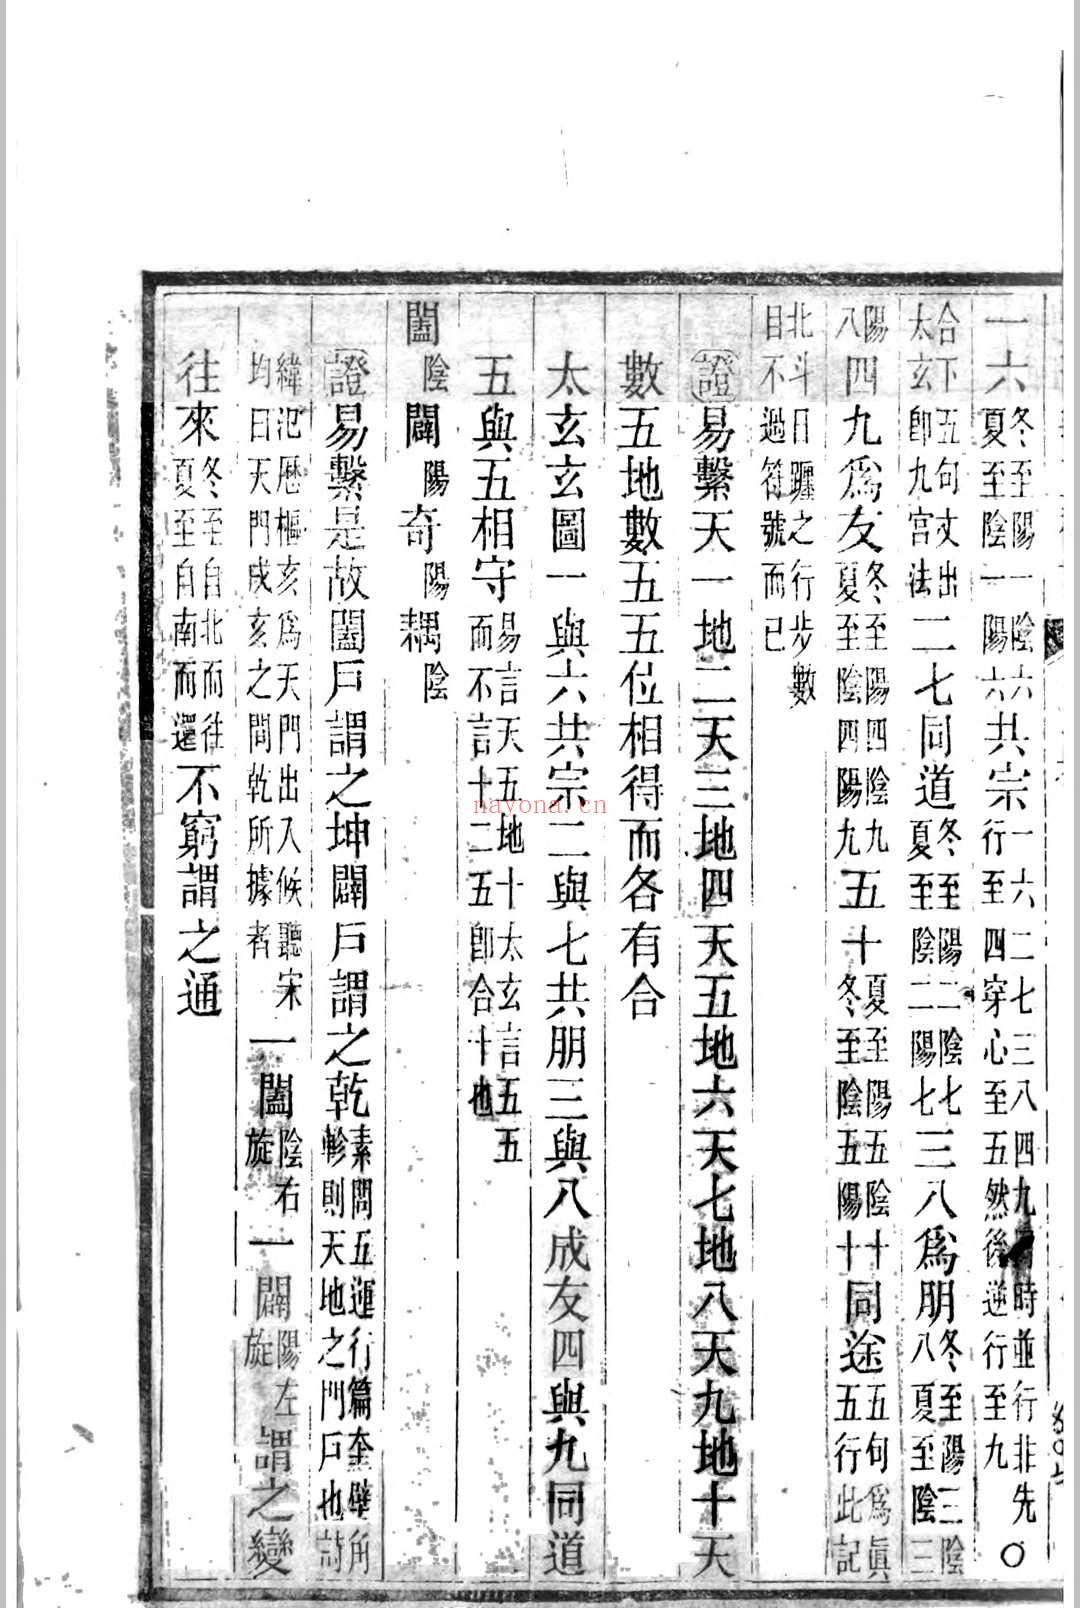 一六冬至陽一陰六夏至陰一陽六共宗一六二七三八四九同時並行非先行至四穿心至五然後逆行至九○
合下五句文出太玄卽九宮法二七同道冬至陽二陰七夏至陰二陽七三八爲朋冬至陽三陰八夏至陰三
陽八四九爲友冬至陽四陰九夏至陰四陽九五十夏至陽五陰十冬至陰五陽十同途五句爲眞五行此記
北斗日躔之行步數目不過符號而已
證易繫天一地二天三地四天五地六天七地八天九地十天
數五地數五五位相得而各有合
太玄玄圖一與六共宗二與七共朋三與八成友四與九同道
五與五相守易言天五地十太玄言五五而不言十二五卽合十也
闔陰闢陽奇陽耦陰
證易繫是故闔戶謂之坤闢戶謂之乾素問五運行篇奎壁角軫則天地之門戶也詩
緯汜厯樞亥爲天門出入候聽宋均曰天門戌亥之間乾所據者一闔陰右旋一闢陽左旋謂之變
往來冬至自北而往夏至自南而還不窮謂之通
nayona.cn